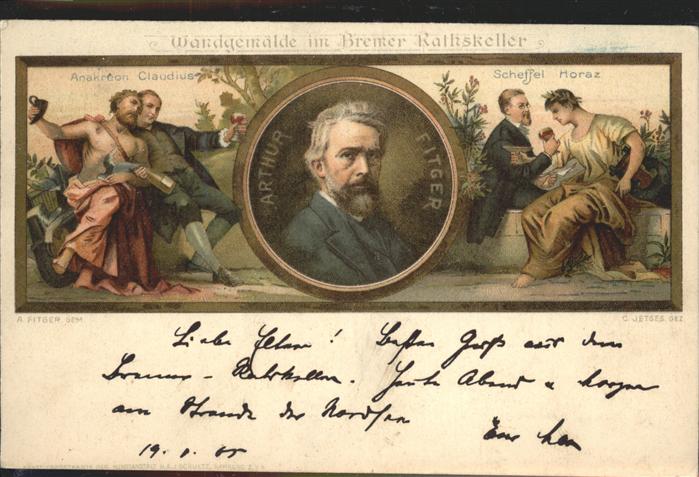 Wandgemälde im Bremer Rathskeller
Anakreon Claudius
Scheffel Horaz
ARTHUR FITGER
A. FITGER GEM.
C. JETSES. GEZ.
Liebe Eltern! Besten Gruß aus dem
Bremer - Rathskeller. Heute Abend u morgen
am Strande der Nordsee
Euer
19.